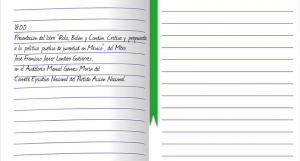 18:00
Presentación del libro "Rola, Balón y Cantón. Crítica y propuesta
a la política pública de juventud en México", del Mtro.
José Francisco Javier Landero Gutiérrez,
en el Auditorio Manuel Gómez Morin del
Comité Ejecutivo Nacional del Partido Acción Nacional.